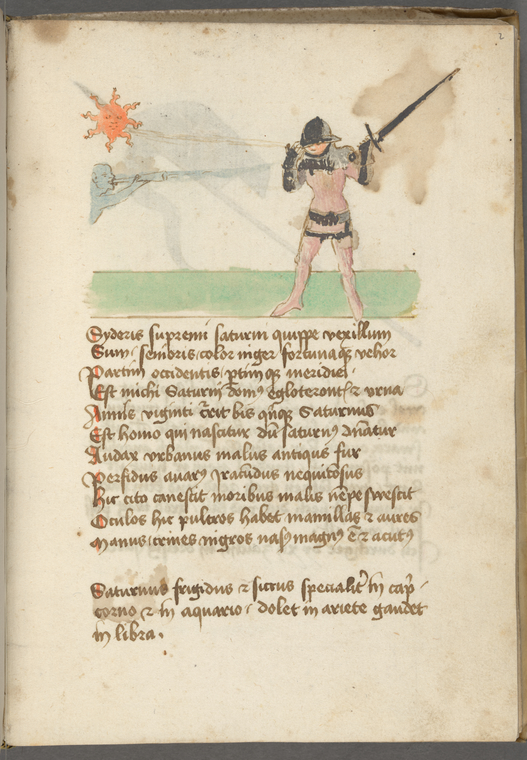 2
Syderis supremi saturni quippe vexillum
Sum senioris color niger fortunaqȝ vehor
Partim occidentis ptimqȝ meridiei
Est michi Saturni domꝰ 2 vrna
Annis viginti bis Saturnus
Est homo qui nascitur dū saturnꝰ dn̄atur
Audax vrbanus malus antiquus fur
Perfidus auarꝰ Iracūdus nequitosus
Hic cito canescit moribus malis
Oculos hic pulcros habet mamillas 2 aures
Manus crines nigros nasꝰ magnꝰ ē 2 acutꝰ
Saturnus frigidus 2 siccus specialit̄ in cap̄
corno 2 in aquario dolet in ariete gaudet
in libra.